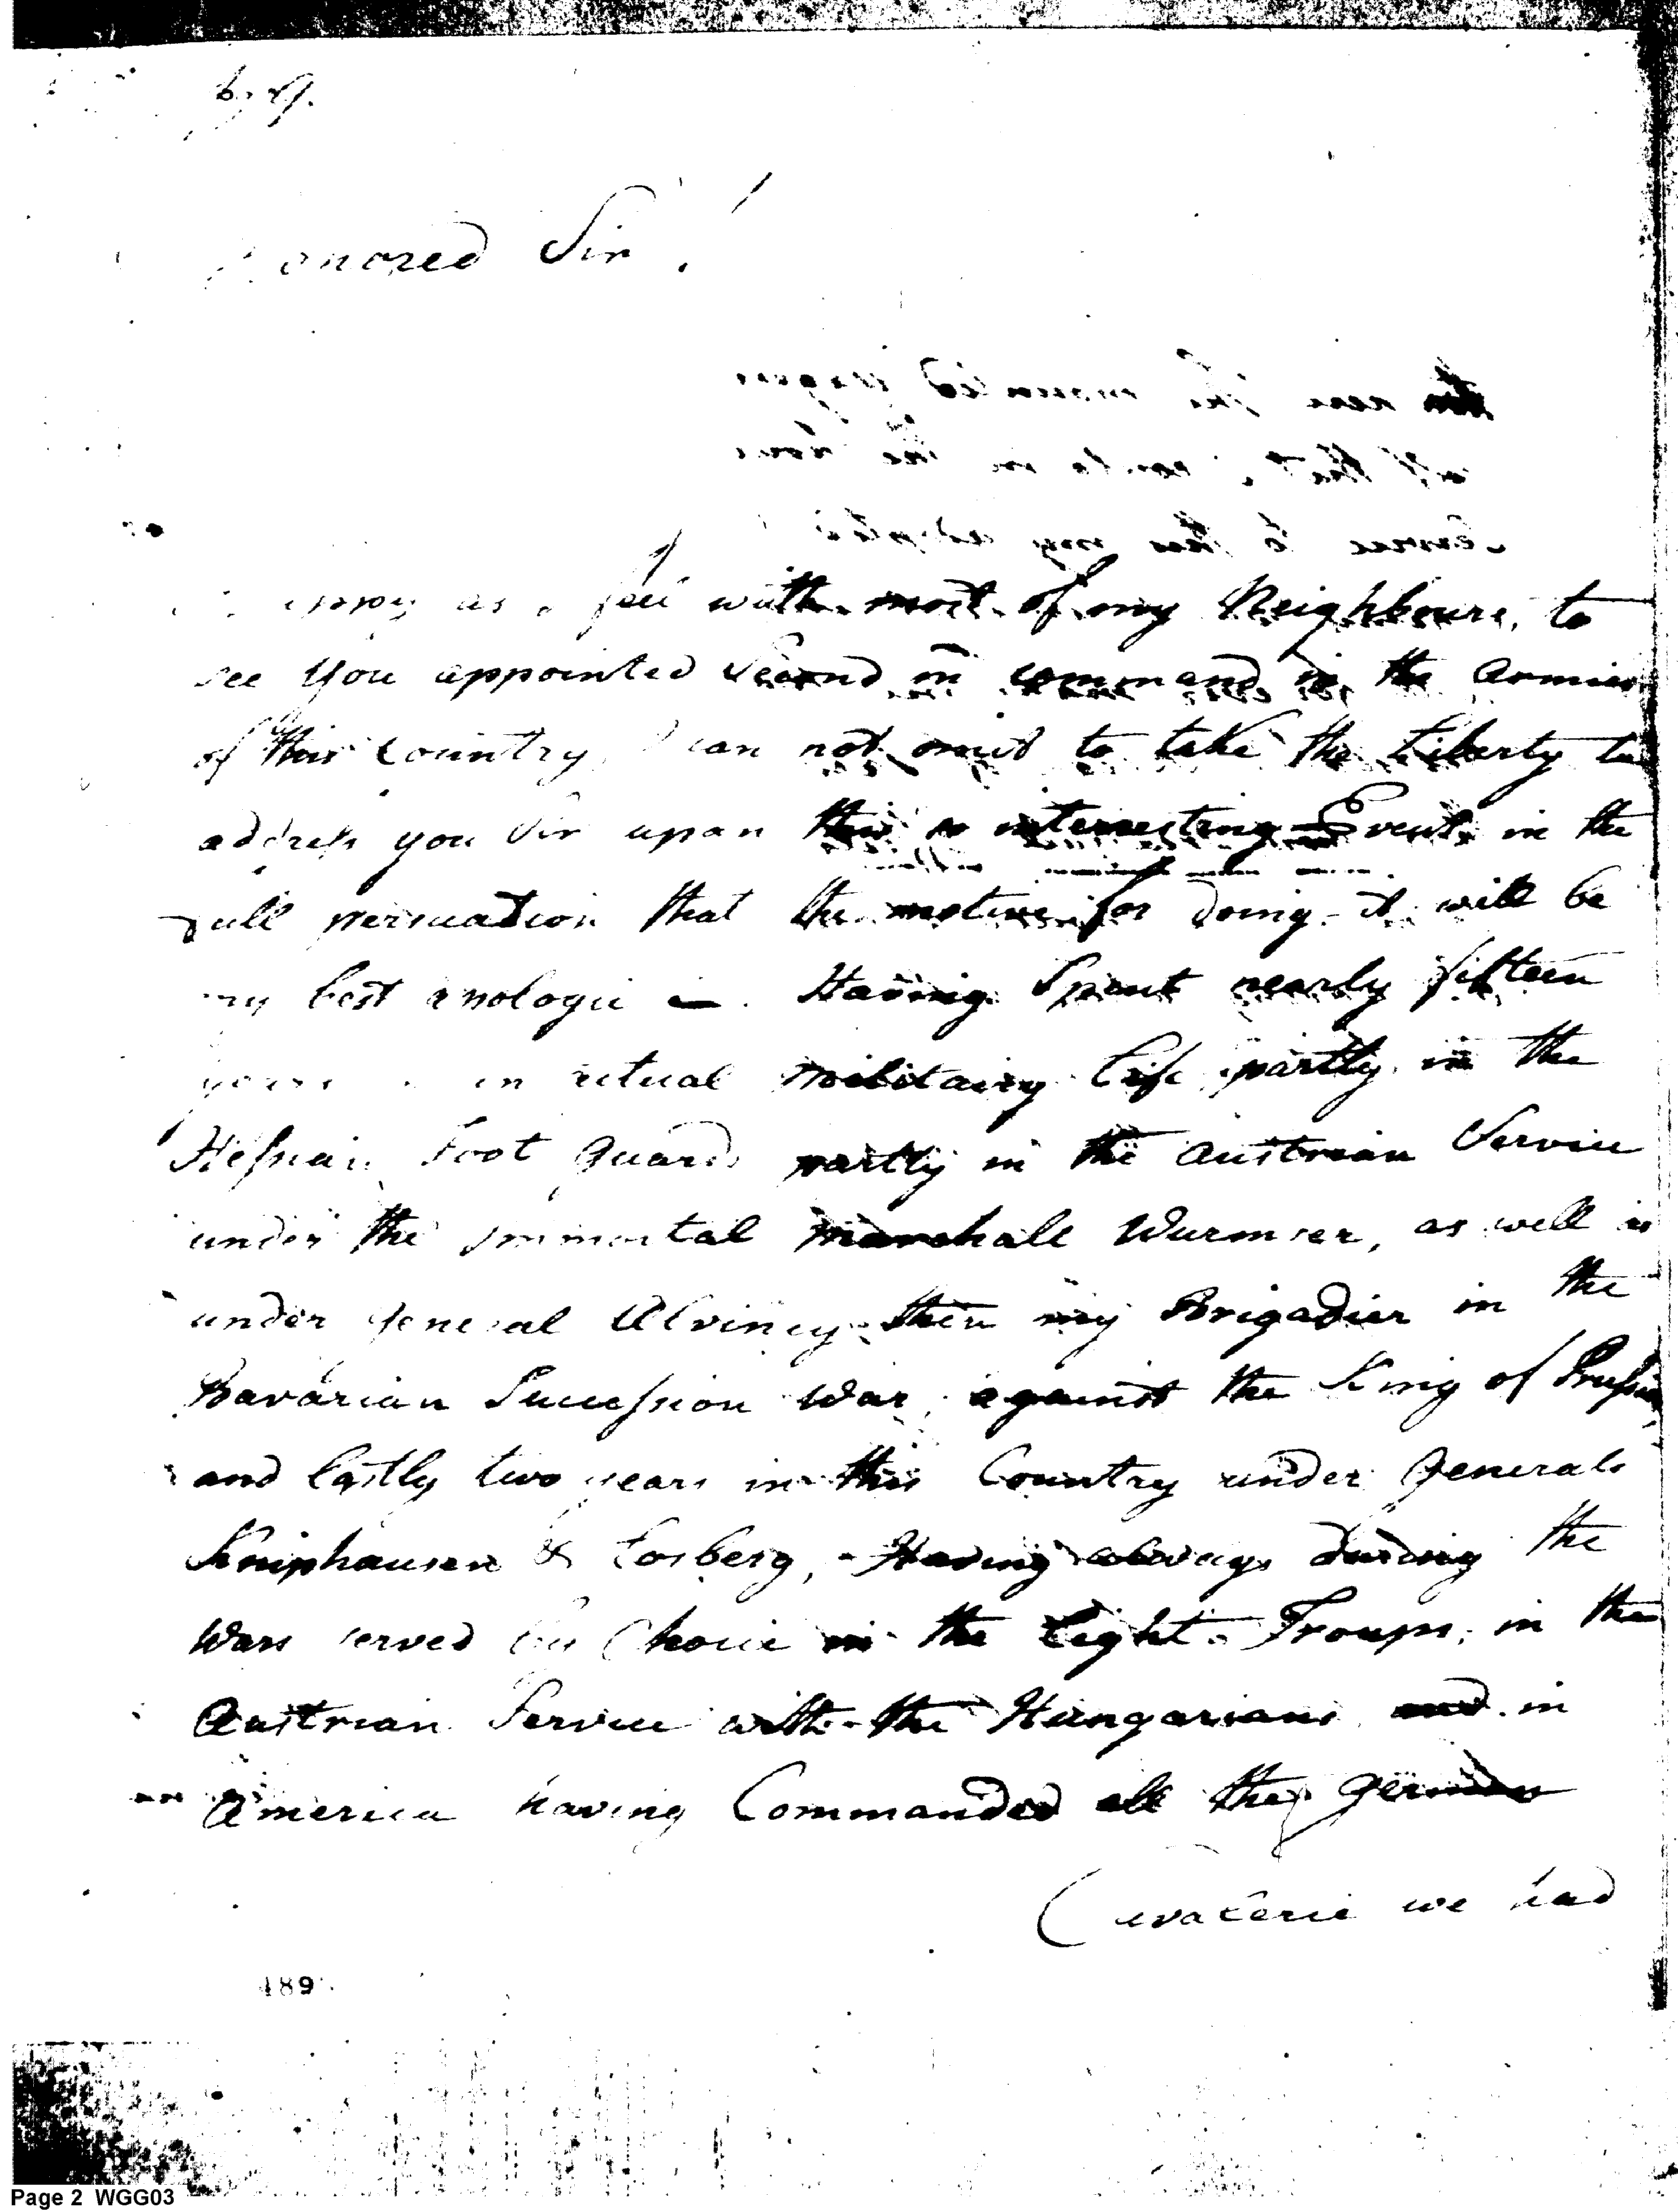 Honored Sir!
happy as I feel with most of my Neighbours, to
see you appointed Second in command in the Armies
of this Country, I can not omit to take the Liberty to
address you Sir upon this so interresting Event, in the
full persuation that the motive for doing it will be
my best apologie —. Having Spent nearly fifteen
years in actual militairy Life partly in the
Hessian Foot Guards partly in the Austrian Service
under the immortal Marshall Wurmser, as well as
under General Alvincy then my Brigadier in the
Bavarian Succession War, against the King of Prussia
and lastly two years in this Country under Generals
Kniphausen & Losberg, Having always during the
Wars served by Choice in the Light Troops, in the
Austrian Service with the Hungarians, and in
America having Commanded all the German
Cavalerie we had
489
Page 2 WGG03